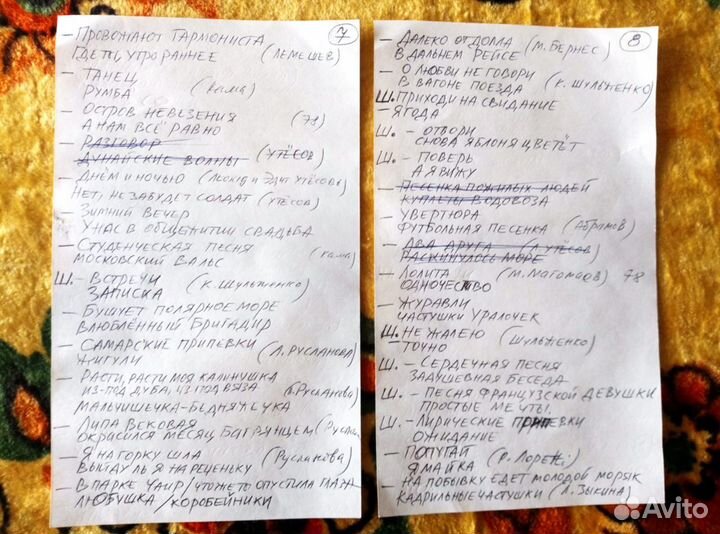 7
- ПРОВОЖАЮТ ГАРМОНИСТА
ГДЕ ТЫ, УТРО РАННЕЕ (ЛЕМЕШЕВ)
- ТАНЕЦ
РУМБА (Кама)
- ОСТРОВ НЕВЕЗЕНИЯ
А НАМ ВСЁ РАВНО (71)
- РАЗГОВОР
ДУНАЙСКИЕ ВОЛНЫ (УТЁСОВ)
- ДНЁМ И НОЧЬЮ (ЛЕОНИД И ЭДИТ УТЁСОВЫ)
НЕТ, НЕ ЗАБУДЕТ СОЛДАТ (УТЁСОВ)
- ЗИМНИЙ ВЕЧЕР
У НАС В ОБЩЕЖИТИИ СВАДЬБА
- СТУДЕНЧЕСКАЯ ПЕСНЯ
МОСКОВСКИЙ ВАЛЬС (Кама)
Ш. - ВСТРЕЧИ
ЗАПИСКА (К. ШУЛЬЖЕНКО)
- БУШУЕТ ПОЛЯРНОЕ МОРЕ
ВЛЮБЛЁННЫЙ БРИГАДИР
- САМАРСКИЕ ПРИПЕВКИ
ЖИГУЛИ (Л. РУСЛАНОВА)
- РАСТИ, РАСТИ МОЯ КАЛИНУШКА
ИЗ-ПОД ДУБА, ИЗ-ПОД ВЯЗА (Л. РУСЛАНОВА)
МАЛЬЧИШЕЧКА-БЕДНЯЧЕЧКА
- ЛИПА ВЕКОВАЯ
ОКРАСИЛСЯ МЕСЯЦ БАГРЯНЦЕМ (РУСЛАН
- Я НА ГОРКУ ШЛА
ВЫЙДУ ЛЬ Я НА РЕЧЕНЬКУ (РУСЛАНОВА)
- В ПАРКЕ ЧАИР / ЧТО Ж ТЫ ОПУСТИЛА ГЛАЗА
ЛЮБУШКА / КОРОБЕЙНИКИ
8
- ДАЛЕКО ОТ ДОМА
В ДАЛЬНЕМ РЕЙСЕ (М. БЕРНЕС)
- О ЛЮБВИ НЕ ГОВОРИ
В ВАГОНЕ ПОЕЗДА (К. ШУЛЬЖЕНКО)
Ш. ПРИХОДИ НА СВИДАНИЕ
- ЯГОДА
Ш. - ОТВОРИ
СНОВА ЯБЛОНЯ ЦВЕТЁТ
Ш. - ПОВЕРЬ
А Я ВИЖУ
- ПЕСЕНКА ПОЖИЛЫХ ЛЮДЕЙ
КУПЛЕТЫ ВОДОВОЗА
- УВЕРТЮРА
ФУТБОЛЬНАЯ ПЕСЕНКА (АБРАМОВ)
- ДВА ДРУГА (Л. УТЁСОВ)
РАСКИНУЛОСЬ МОРЕ
- ЛОЛИТА (М. МАГОМАЕВ) 78
ОДНОЧЕСТВО
- ЖУРАВЛИ
ЧАСТУШКИ УРАЛОЧЕК
Ш. НЕ ЖАЛЕЮ (ШУЛЬЖЕНКО)
- ТОЧНО
Ш. - СЕРДЕЧНАЯ ПЕСНЯ
ЗАДУШЕВНАЯ БЕСЕДА
Ш. - ПЕСНЯ ФРАНЦУЗСКОЙ ДЕВУШКИ
ПРОСТЫЕ МЕЧТЫ.
Ш. - ЛИРИЧЕСКИЕ ПРИПЕВКИ
ОЖИДАНИЕ
- ПОПУГАЙ
ЯМАЙКА (Р. ЛОРЕТТИ)
- НА ПОБЫВКУ ЕДЕТ МОЛОДОЙ МОРЯК
КАДРИЛЬНЫЕ ЧАСТУШКИ (Л. ЗЫКИНА)
Avito